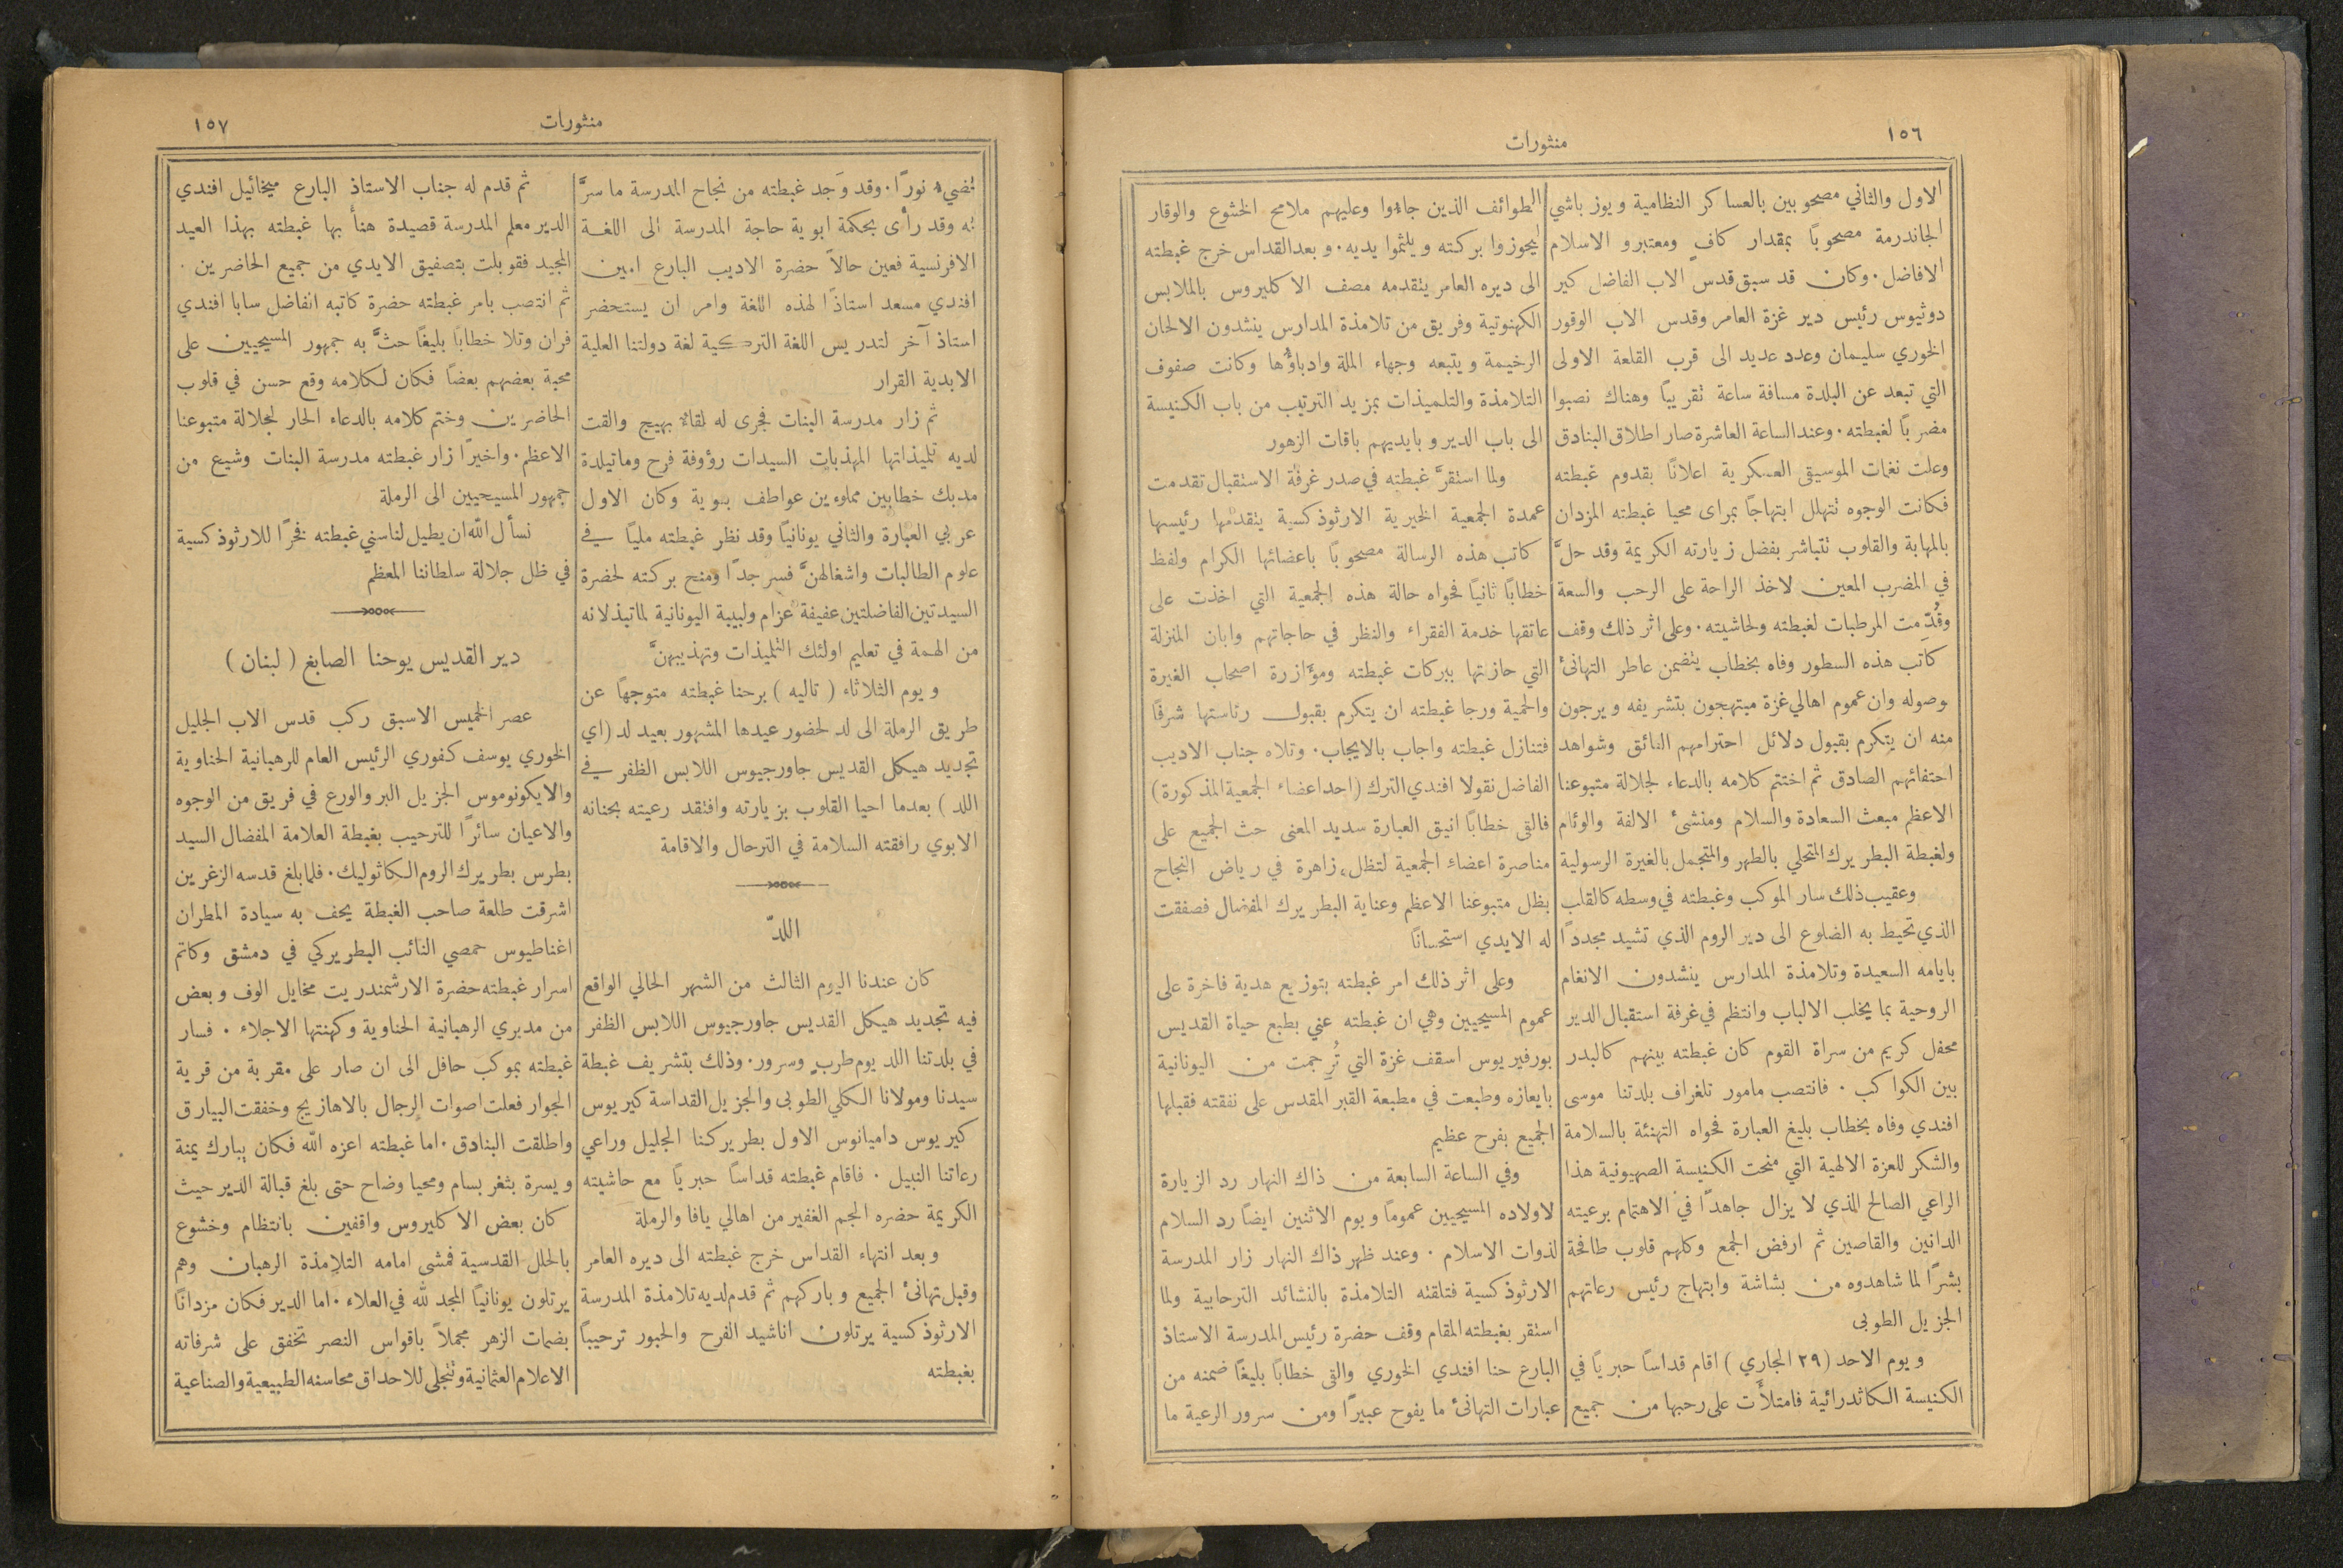 ١٥٦
منثورات
الاول والثاني مصحوبين بالعساكر النظامية ويوز باشي
الجاندرمة مصحوبًا بمقدار كافٍ ومعتبرو الاسلام
الافاضل. وكان قد سبق قدس الاب الفاضل كير
دوثيوس رئيس دير غزة العامر وقدس الاب الوقور
الخوري سليمان وعدد عديد الى قرب القلعة الاولى
التي تبعد عن البلدة مسافة ساعة تقريبًا وهناك نصبوا
مضربًا لغبطته. وعند الساعة العاشرة صار اطلاق البنادق
وعلت نغمات الموسيقى العسكرية اعلانًا بقدوم غبطته
فكانت الوجوه تتهلل ابتهاجًا بمراى محيا غبطته المزدان
بالمهابة والقلوب تتباشر بفضل زيارته الكريمة وقد حلَّ
في المضرب المعين لاخذ الراحة على الرحب والسعة
وقُدِّمت المرطبات لغبطته ولحاشيته. وعلى اثر ذلك وقف
كاتب هذه السطور وفاه بخطاب يتضمن عاطر التهانئ
بوصوله وان عموم اهالي غزة مبتهجون بتشريفه ويرجون
منه ان يتكرم بقبول دلائل احترامهم الفائق وشواهد
احتفائهم الصادق ثم اختتم كلامه بالدعاء لجلالة متبوعنا
الاعظم مبعث السعادة والسلام ومنشئ الالفة والوئام
ولغبطة البطريرك المتحلي بالطهر والمتجمل بالغيرة الرسولية
وعقيب ذلك سار الموكب وغبطته في وسطه كالقلب
الذي تحيط به الضلوع الى دير الروم الذي تشيد مجددًا
بايامه السعيدة وتلامذة المدارس ينشدون الانغام
الروحية بما يخلب الالباب وانتظم في غرفة استقبال الدير
محفل كريم من سراة القوم كان غبطته بينهم كالبدر
بين الكواكب. فانتصب مامور تلغراف بلدتنا موسى
افندي وفاه بخطاب بليغ العبارة فحواه التهنئة بالسلامة
والشكر للعزة الالهية التي منحت الكنيسة الصهيونية هذا
الراعي الصالح الذي لا يزال جاهدًا في الاهتمام برعيته
الدانين والقاصين ثم ارفض الجمع وكلهم قلوب طافحة
بشرًا لما شاهدوه من بشاشة وابتهاج رئيس رعاتهم
الجزيل الطوبى
ويوم الاحد (٢٩ الجاري) اقام قداسًا حبريًا في
الكنيسة الكاثدرائية فامتلأَت على رحبها من جميع
الطوائف الذين جاءوا وعليهم ملامح الخشوع والوقار
ليحوزوا بركته ويلثموا يديه. وبعد القداس خرج غبطته
الى ديره العامر يتقدمه مصف الاكليروس بالملابس
الكهنوتية وفريق من تلامذة المدارس ينشدون الالحان
الرخيمة ويتبعه وجهاء الملة وادباؤُها وكانت صفوف
التلامذة والتلميذات بمزيد الترتيب من باب الكنيسة
الى باب الدير وبايديهم باقات الزهور
ولما استقرَّ غبطته في صدر غرفة الاستقبال تقدمت
عمدة الجمعية الخيرية الارثوذكسية يتقدمها رئيسها
كاتب هذه الرسالة مصحوبًا باعضائها الكرام ولفظ
خطابًا ثانيًا فحواه حالة هذه الجمعية التي اخذت على
عاتقها خدمة الفقراء والنظر في حاجاتهم وابان المنزلة
التي حازتها ببركات غبطته ومؤازرة اصحاب الغيرة
والحمية ورجا غبطته ان يتكرم بقبول رئاستها شرفًا
فتنازل غبطته واجاب بالايجاب. وتلاه جناب الاديب
الفاضل نقولا افندي الترك (احد اعضاء الجمعية المذكورة)
فالقى خطابًا انيق العبارة سديد المعنى حث الجميع على
مناصرة اعضاء الجمعية لتظل زاهرة في رياض النجاح
بظل متبوعنا الاعظم وعناية البطريرك المفضال فصفقت
له الايدي استحسانًا
وعلى اثر ذلك امر غبطته بتوزيع هدية فاخرة على
عموم المسيحيين وهي ان غبطته عني بطبع حياة القديس
بورفيريوس اسقف غزة التي تُرجمت من اليونانية
بايعازه وطبعت في مطبعة القبر المقدس على نفقته فقبلها
الجميع بفرح عظيم
وفي الساعة السابعة من ذاك النهار رد الزيارة
لاولاده المسيحيين عمومًا ويوم الاثنين ايضًا رد السلام
لذوات الاسلام. وعند ظهر ذاك النهار زار المدرسة
الارثوذكسية فتلقته التلامذة بالنشائد الترحابية ولما
استقر بغبطته المقام وقف حضرة رئيس المدرسة الاستاذ
البارع حنا افندي الخوري والقى خطابًا بليغًا ضمنه من
عبارات التهانئ ما يفوح عبيرًا ومن سرور الرعية ما
منثورات
١٥٧
تضيء نورًا. وقد وَجد غبطته من نجاح المدرسة ما سرَّ
به وقد رأَى بحكمة ابوية حاجة المدرسة الى اللغة
الافرنسية فعين حالاً حضرة الاديب البارع امين
افندي مسعد استاذًا لهذه اللغة وامر ان يستحضر
استاذ آخر لتدريس اللغة التركية لغة دولتنا العلية
الابدية القرار
ثم زار مدرسة البنات فجرى له لقاءٌ بهيج والقت
لديه تلميذاتها المهذبات السيدات رؤوفة فرح وماتيلدة
مدبك خطابين مملوءين عواطف بنوية وكان الاول
عربي العبارة والثاني يونانيًا وقد نظر غبطته مليًا في
علوم الطالبات واشغالهنَّ فسر جدًا ومنح بركته لحضرة
السيدتين الفاضلتين عفيفة عزام ولبيبة اليونانية لما تبذلانه
من الهمة في تعليم اولئك التلميذات وتهذيبهنَّ
ويوم الثلاثاء (تاليه) برحنا غبطته متوجهًا عن
طريق الرملة الى لد لحضور عيدها المشهور بعيد لد (اي
تجديد هيكل القديس جاورجيوس اللابس الظفر في
اللد) بعدما احيا القلوب بزيارته وافتقد رعيته بحنانه
الابوي رافقته السلامة في الترحال والاقامة
اللدّ
كان عندنا اليوم الثالث من الشهر الحالي الواقع
فيه تجديد هيكل القديس جاورجيوس اللابس الظفر
في بلدتنا اللد يوم طربٍ وسرور. وذلك بتشريف غبطة
سيدنا ومولانا الكلي الطوبى والجزيل القداسة كيريوس
كيريوس داميانوس الاول بطريركنا الجليل وراعي
رعاتنا النبيل. فاقام غبطته قداسًا حبريًا مع حاشيته
الكريمة حضره الجم الغفير من اهالي يافا والرملة
وبعد انتهاء القداس خرج غبطته الى ديره العامر
وقبل تهانئ الجميع وباركهم ثم قدم لديه تلامذة المدرسة
الارثوذكسية يرتلون اناشيد الفرح والحبور ترحيبًا
بغبطته
ثم قدم له جناب الاستاذ البارع ميخائيل افندي
الدير معلم المدرسة قصيدة هنأَ بها غبطته بهذا العيد
المجيد فقوبلت بتصفيق الايدي من جميع الحاضرين.
ثم انتصب بامر غبطته حضرة كاتبه الفاضل سابا افندي
فران وتلا خطابًا بليغًا حثَّ به جمهور المسيحيين على
محبة بعضهم بعضًا فكان لكلامه وقع حسن في قلوب
الحاضرين وختم كلامه بالدعاء الحار لجلالة متبوعنا
الاعظم. واخيرًا زار غبطته مدرسة البنات وشيع من
جمهور المسيحيين الى الرملة
نسأل الله ان يطيل لنا سني غبطته فخرًا للارثوذكسية
في ظل جلالة سلطاننا المعظم
دير القديس يوحنا الصابغ (لبنان)
عصر الخميس الاسبق ركب قدس الاب الجليل
الخوري يوسف كفوري الرئيس العام للرهبانية الحناوية
والايكونوموس الجزيل البر والورع في فريق من الوجوه
والاعيان سائرًا للترحيب بغبطة العلامة المفضال السيد
بطرس بطريرك الروم الكاثوليك. فلما بلغ قدسه الزغرين
اشرقت طلعة صاحب الغبطة يحف به سيادة المطران
اغناطيوس حمصي النائب البطريركي في دمشق وكاتم
اسرار غبطته حضرة الارشمندريت مخايل الوف وبعض
من مدبري الرهبانية الحناوية وكهنتها الاجلاء. فسار
غبطته بموكب حافل الى ان صار على مقربة من قرية
الجوار فعلت اصوات الرجال بالاهازيج وخفقت البيارق
واطلقت البنادق. اما غبطته اعزه الله فكان يبارك يمنة
ويسرة بثغر بسام ومحيا وضاح حتى بلغ قبالة الدير حيث
كان بعض الاكليروس واقفين بانتظام وخشوع
بالحلل القدسية فمشى امامه التلامذة الرهبان وهم
يرتلون يونانيًا المجد لله في العلاء. اما الدير فكان مزدانًا
بضمات الزهر مجملاً باقواس النصر تخفق على شرفاته
الاعلام العثمانية وتتجلى للاحداق محاسنه الطبيعية والصناعية